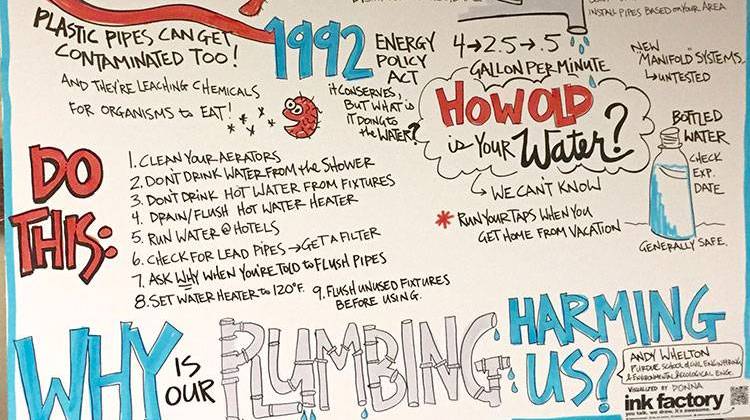 INSTALL PIPES BASED ON YOUR AREA
PLASTIC PIPES CAN GET
CONTAMINATED TOO!
AND THEY'RE LEACHING CHEMICALS
FOR ORGANISMS to EAT!
1992
ENERGY
POLICY
ACT
it CONSERVES,
BUT WHAT is
IT DOING to
the WATER?
4→2.5→.5
GALLON PER MINUTE
NEW
"MANIFOLD" SYSTEMS
↳UNTESTED
HOW OLD
is YOUR Water?
↳ WE CAN'T KNOW
* RUN YOUR TAPS WHEN YOU
GET HOME FROM VACATION
BOTTLED
WATER
CHECK
EXP.
DATE
GENERALLY SAFE.
DO
THIS:
1. CLEAN YOUR AERATORS
2. DON'T DRINK WATER FROM the SHOWER
3. DON'T DRINK HOT WATER FROM FIXTURES
4. DRAIN/FLUSH HOT WATER HEATER
5. RUN WATER @ HOTELS
6. CHECK FOR LEAD PIPES → GET A FILTER
7. ASK WHY WHEN YOU'RE TOLD to FLUSH PIPES
8. SET WATER HEATER to 120°F.
9. FLUSH UNUSED FIXTURES
BEFORE USING.
WHY IS OUR PLUMBING HARMING
US?
ANDY WHELTON
PURDUE SCHOOL of CIVIL ENGINEERING
& ENVIRONMENTAL & ECOLOGICAL ENGE.
VISUALIZED BY DONNA
ink factory
you talk. we draw. it's awesome.